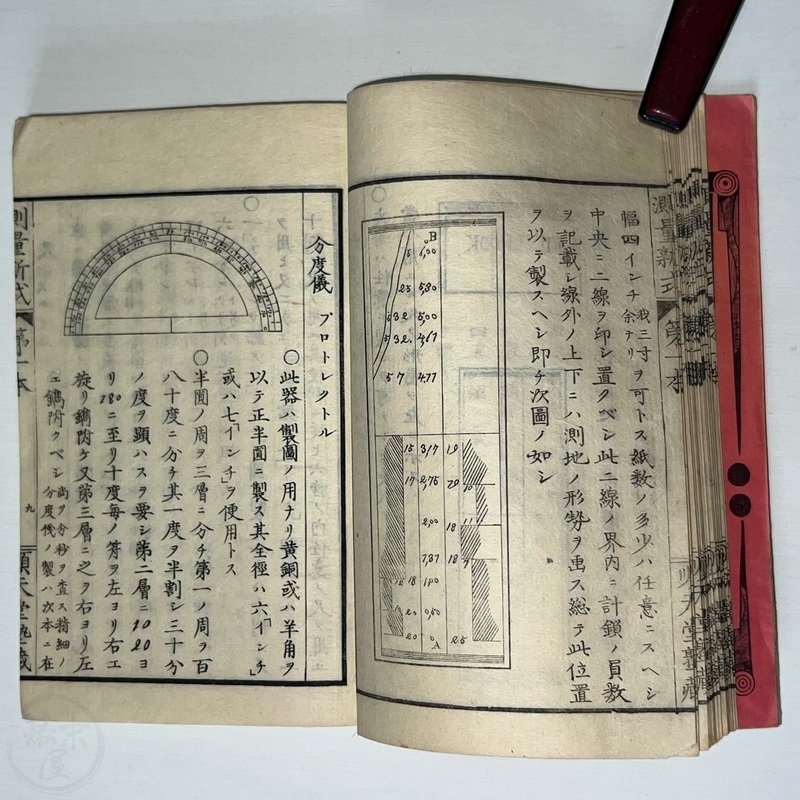 測量新式 第一本
順天堂塾蔵
幅四インチ我三寸余ナリヲ可トス紙数ノ多少ハ任意ニスヘシ
中央ニ二線ヲ印シ置クベシ此二線ノ界内ニ計鎖ノ員数
ヲ記載シ線外ノ上下ニハ測地ノ形勢ヲ画ス総テ此位置
ヲ以テ製スヘシ即チ次圖ノ如シ
B
6,00
25 5,80
32 5,00
5 32 4,67
5 7 4,77
15 3,17 10
17 2,76 20 10
2,00 18 11
7,37 18 9
12 18 1,00
20 0,50
20 0 25
A
分度儀 プロトレクトル
○此器ハ製圖ノ用ナリ黄銅或ハ羊角ヲ
以テ正半圓ニ製ス其全径ハ六「インチ」
或ハ七「インチ」ヲ使用トス
○半圓ノ周ヲ三層ニ分チ第一ノ周ヲ百
八十度ニ分チ其一度ヲ半割シ三十分
ノ度ヲ顕ハスヲ要シ第二層ニ10 20ヨ
リ180ニ至リ十度毎ノ符ヲ左ヨリ右エ
旋リ鐫附ケ又第三層ニ之ヲ右ヨリ左
エ鐫附クベシ尚ヲ分秒ヲ査ス精細ノ分度儀ノ製ハ次本ニ在
測量新式 第一本
九
順天堂塾蔵